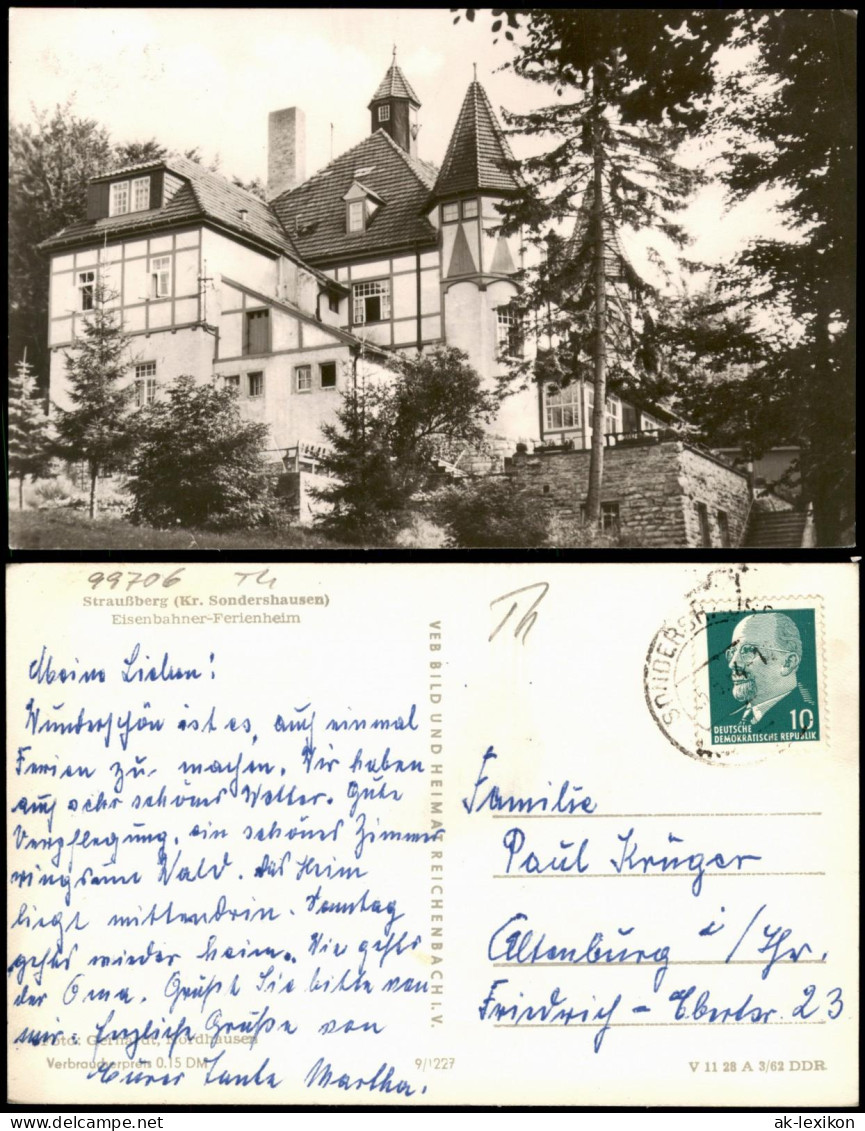 99706 Th
Straußberg (Kr. Sondershausen)
Eisenbahner-Ferienheim
Th
SONDERSH
10
DEUTSCHE
DEMOKRATISCHE REPUBLIK
Meine Lieben!
Wunderschön ist es, auch einmal
Ferien zu machen. Wir haben
auch sehr schönes Wetter. Gute
Verpflegung, ein schönes Zimmer
ringsum Wald. Das Heim
liegt mittendrin. Sonntag
gehts wieder heim. Wie gehts
der Oma. Grüßt Sie bitte von
mir. Herzliche Grüße von
Eurer Tante Martha.
VEB BILD UND HEIMAT REICHENBACH I. V.
Familie
Paul Krüger
Altenburg i/Thr.
Friedrich-Ebertstr. 23
Foto: Gerhardt, Nordhausen
Verbraucherpreis 0.15 DM
9/1227
V 11 28 A 3/62 DDR
ak-lexikon